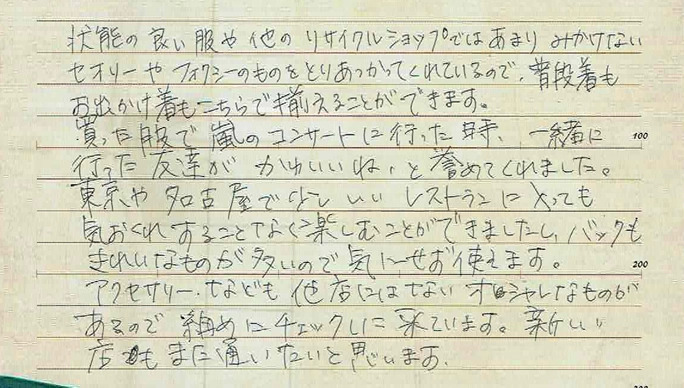 状態の良い服や他のリサイクルショップではあまりみかけない
セオリーやフォクシーのものをとりあつかってくれているので、普段着も
お出かけ着もこちらで揃えることができます。
買った服で嵐のコンサートに行った時、一緒に
100
行った友達がかわいいね、と誉めてくれました。
東京や名古屋で少しいいレストランにいっても
気おくれすることなく楽しむことができましたし、バックも
きれいなものが多いので気にせず使えます。
200
アクセサリーなども他店にはないオシャレなものが
あるので細めにチェックしに来ています。新しい
店もまた通いたいと思います。